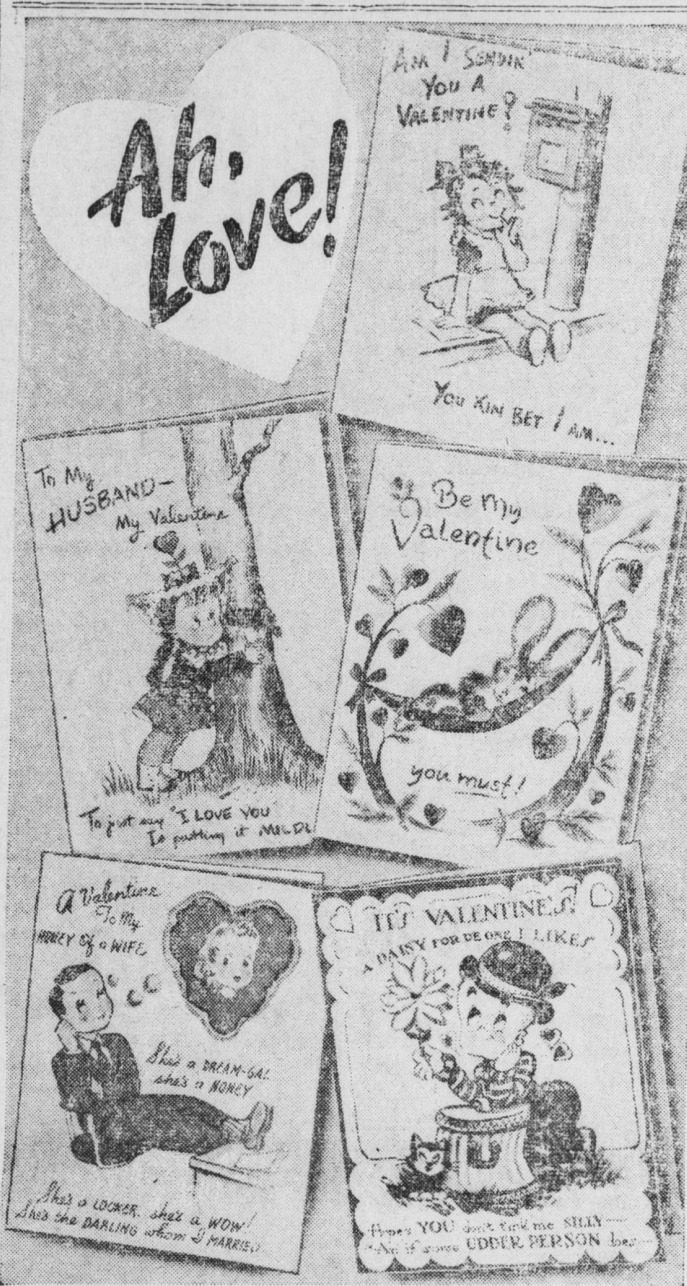 Ah,
Love!
AM I SENDIN'
YOU A
VALENTINE?
YOU KIN BET I AM...
To My
HUSBAND—
My Valentine
To just say "I LOVE YOU"
Is putting it MILDLY
Be my
Valentine
you must!
A Valentine
To My
HONEY of a WIFE
She's a DREAM-GAL
she's a HONEY
She's a LOOKER, she's a WOW!
She's the DARLING whom I MARRIED
IT'S VALENTINE'S!
A DAISY FOR DE ONE I LIKES
Hopes YOU don't tink me SILLY—
An' if some UDDER PERSON